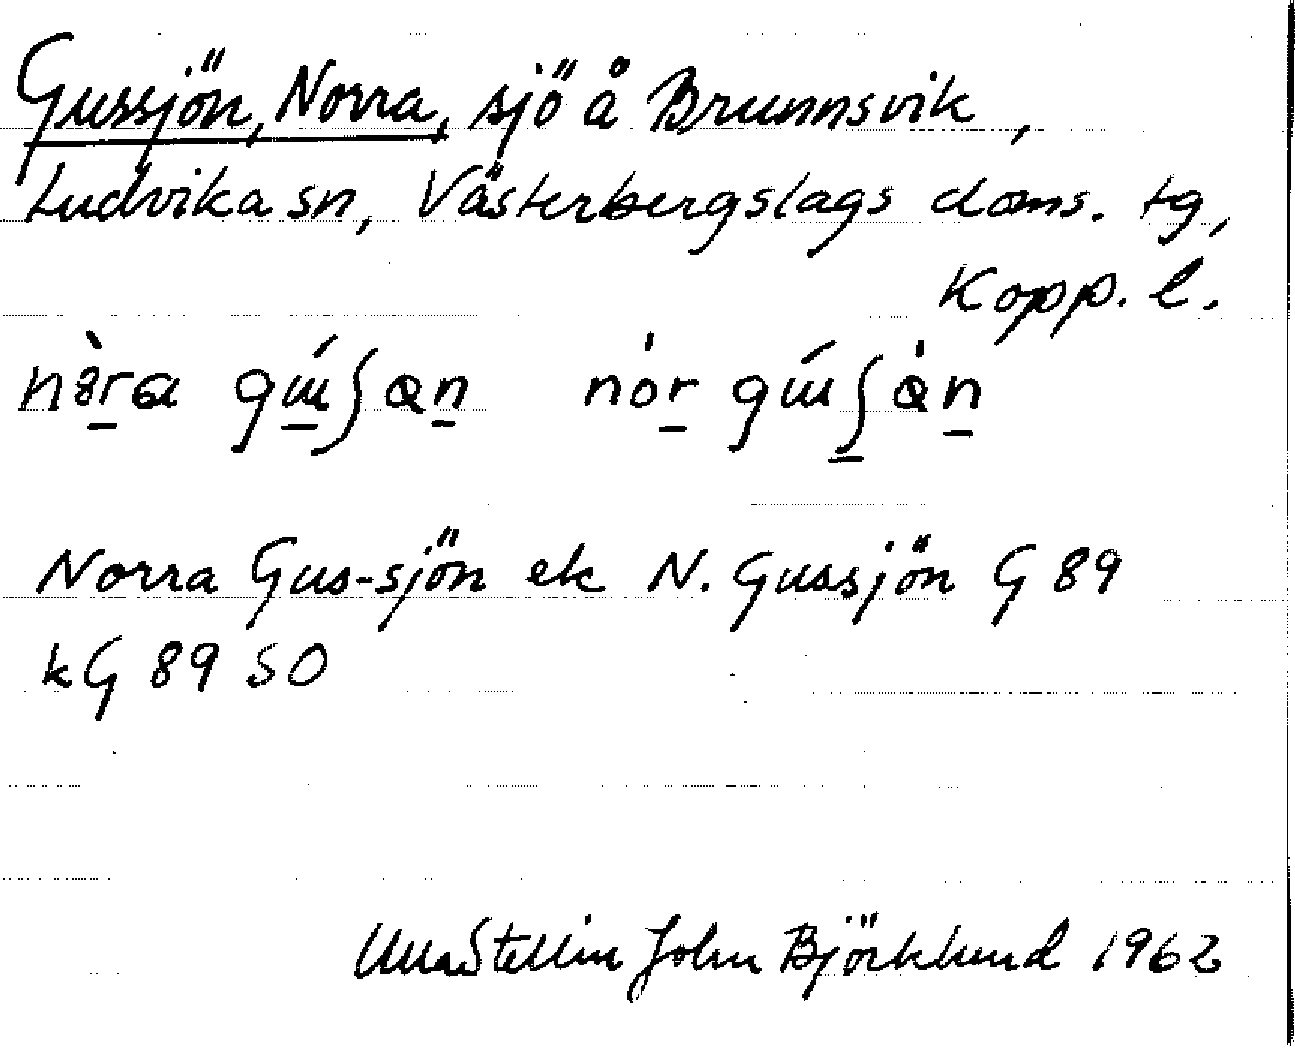 Gussjön, Norra, sjö å Brunnsvik,
Ludvika sn, Västerbergslags doms. tg,
Kopp. l.
Norra Gus-sjön ek N. Gussjön G 89
kG 89 SO
Ulla Stellin John Björklund 1962